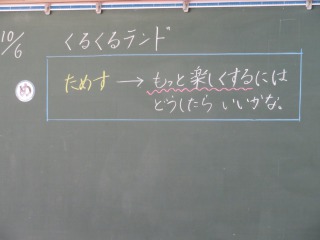 10/6 くるくるランド
め
ためす → もっと楽しくするには
どうしたら いいかな。